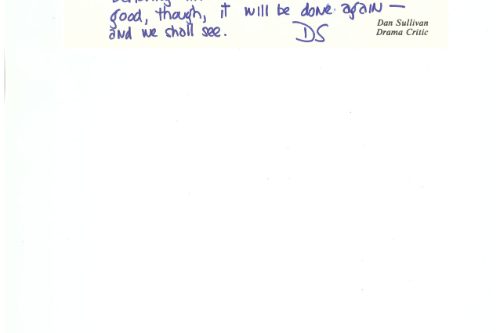 good, though, it will be done again —
and we shall see. DS
Dan Sullivan
Drama Critic